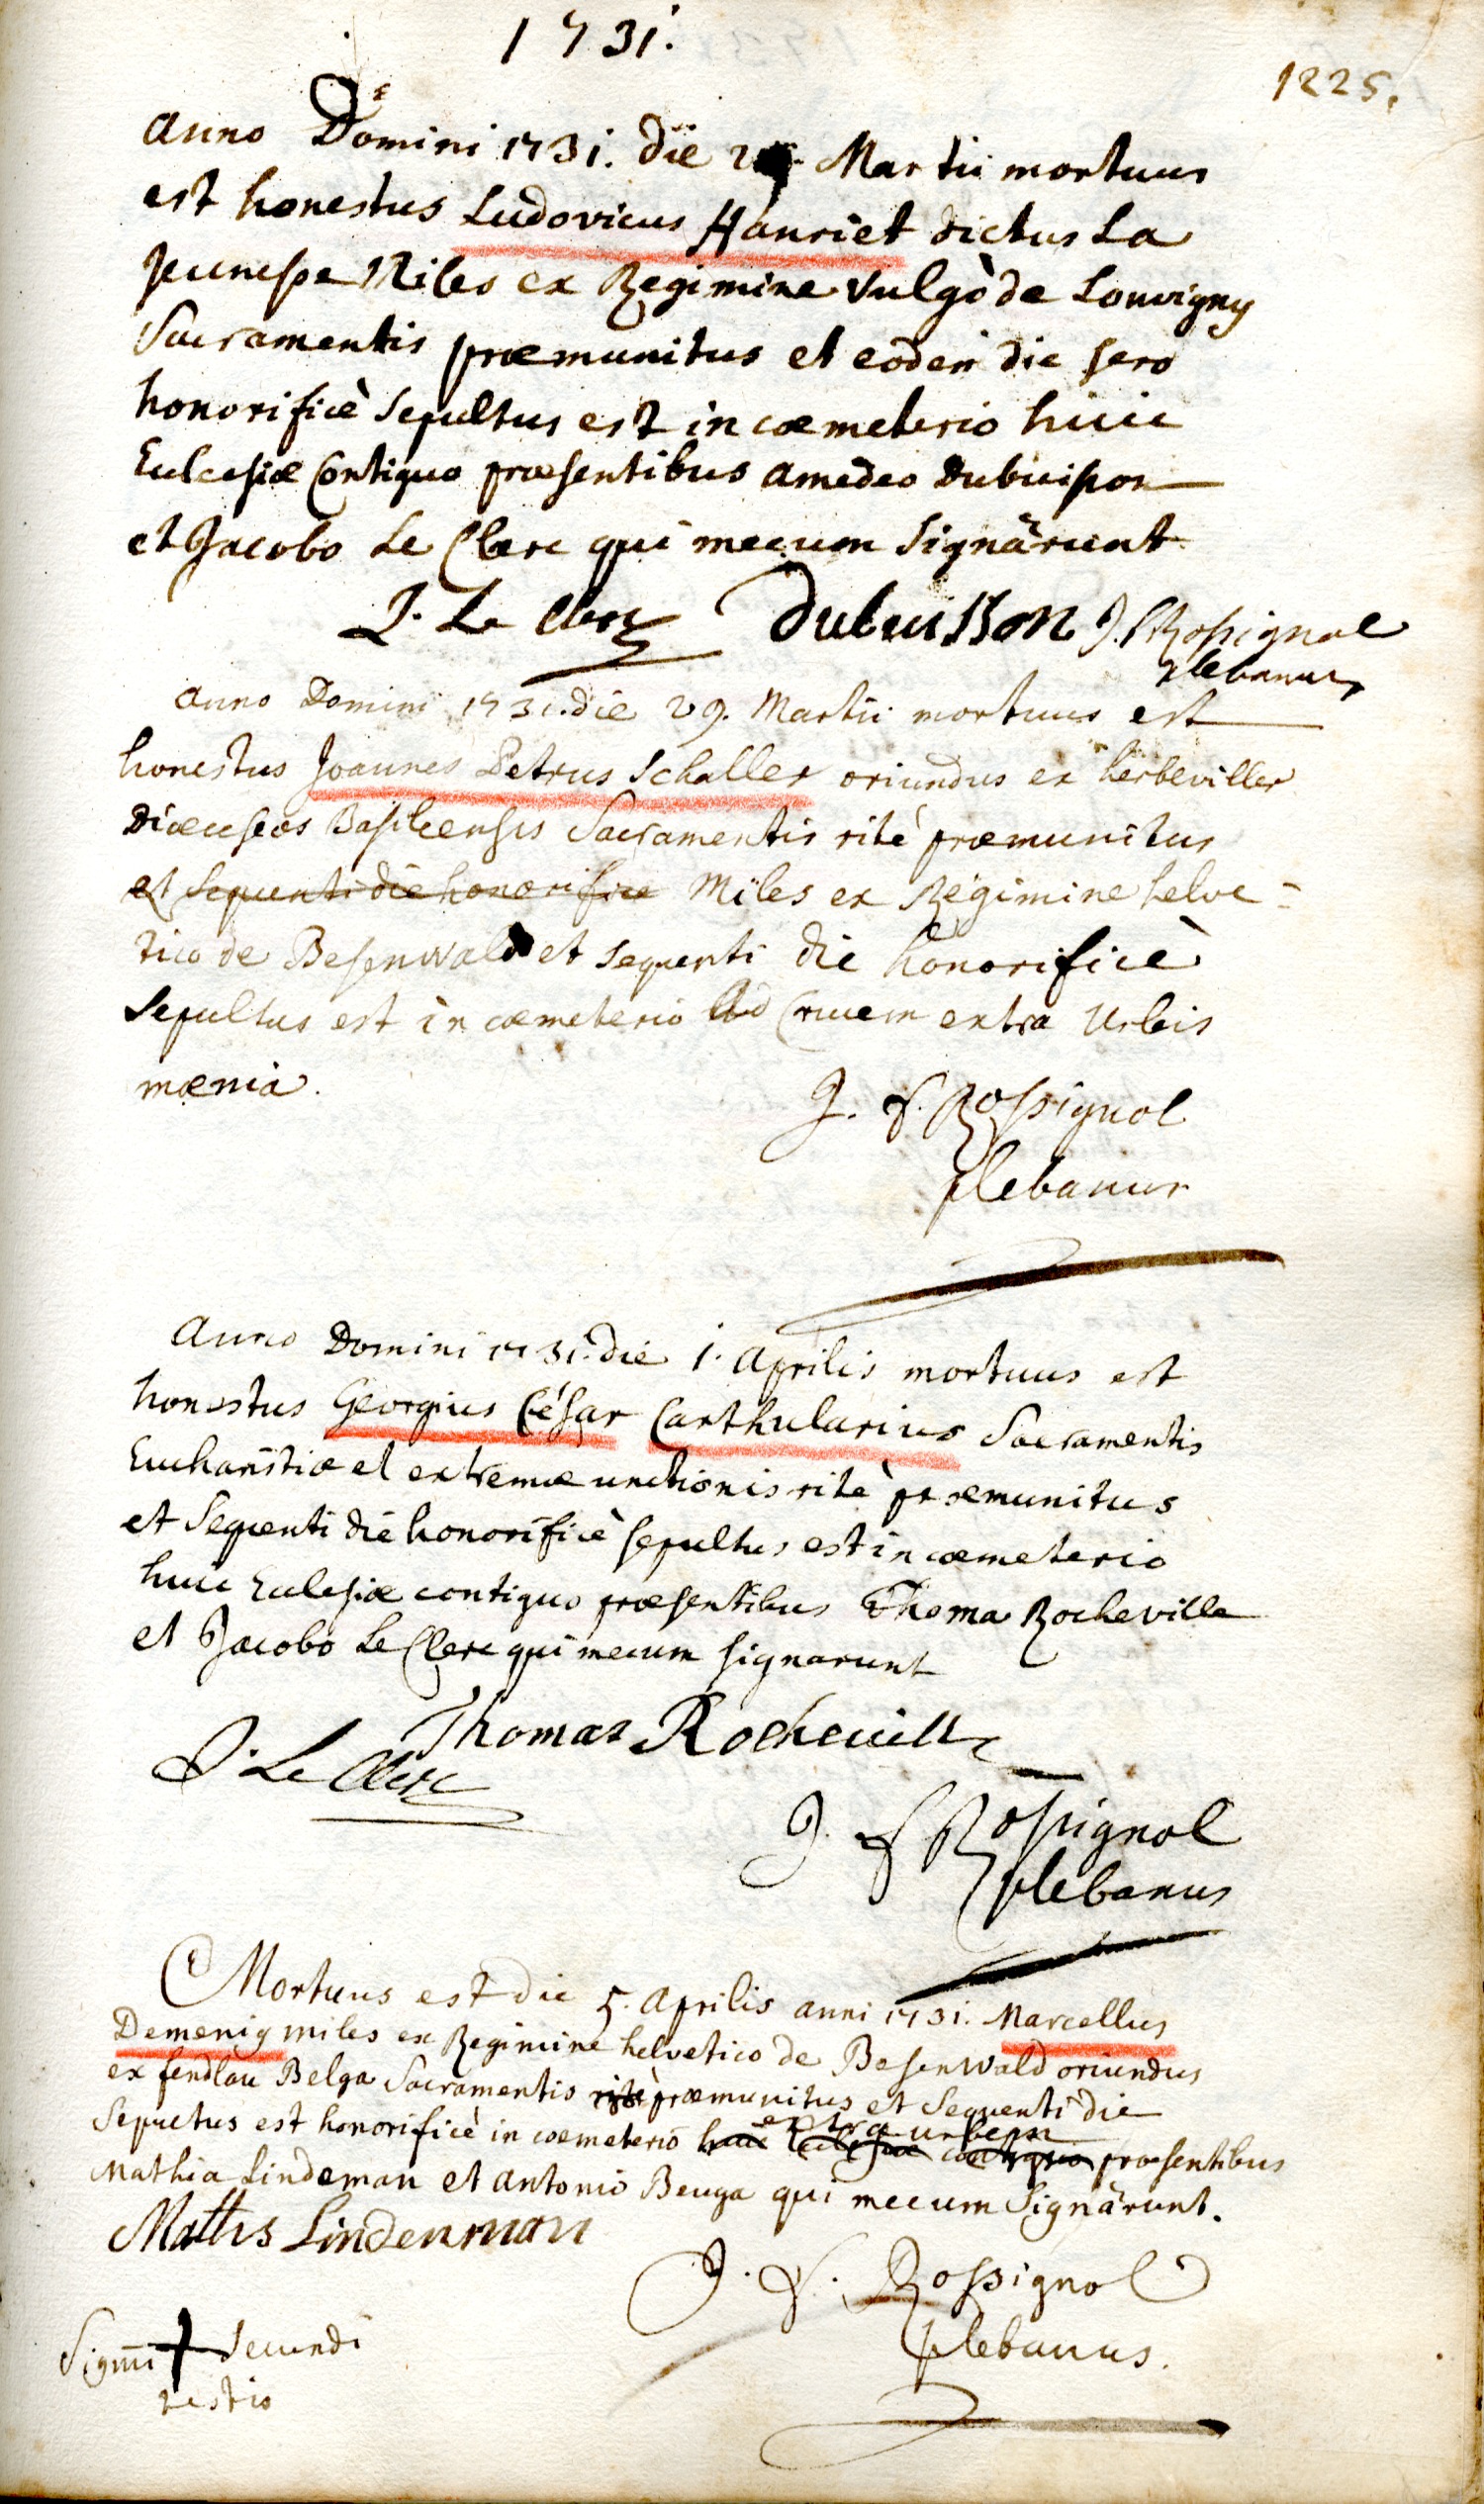 1731.
1225.
Anno Domini 1731. die Martii mortuus
est honestus Ludovicus Hanriet dictus La
Jeunesse Miles ex Regimine vulgò de Louvigny
Sacramentis præmunitus et eodem die sero
honorificè sepultus est in cœmeterio huic
Ecclesiæ Contiguo præsentibus Amedeo Dubuisson
et Jacobo Le Clerc qui mecum signârunt
J. Le Clerc Dubuisson J. F. Rossignol
plebanus
Anno Domini 1731. die 29. Martii mortuus est
honestus Joannes Petrus Schaller oriundus ex herbeviller
Diœceseos Basileensis Sacramentis ritè præmunitus
et sequenti die honorifice Miles ex Regimine helve-
tico de Besenwald et sequenti die honorificè
sepultus est in cœmeterio Ad Crucem extra Urbis
mœnia.
J. F. Rossignol
plebanus
Anno Domini 1731. die 1. Aprilis mortuus est
honestus Georgius César Carthularius Sacramentis
Eucharistiæ et extremæ unctionis ritè præmunitus
et sequenti die honorificè sepultus est in cœmeterio
huic Eclesiæ contiguo præsentibus Thoma Rocheville
et Jacobo Le Clerc qui mecum signarunt
Thomas Rocheville
J. Le Clerc
J. F. Rossignol
plebanus
Mortuus est die 5. Aprilis anni 1731. Marcellus
Demenig miles ex Regimine helvetico de Besenwald oriundus
ex fendlau Belga Sacramentis ritè præmunitus et Sequenti die
extra urbem
Sepultus est honorificè in cœmeterio huic Eclesiæ contiguo præsentibus
Mathia Lindeman et Antonio Beuga qui mecum Signârunt.
Mathis Lindenman
J. F. Rossignol
plebanus.
Signū + secundi
testis